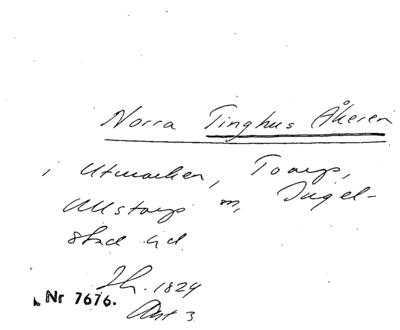 Norra Tinghus Åkeren
i Utmarken, Toarp,
Ullstorp sn, Ingel-
stad hd.
Jh. 1824
Akt 3
Nr 7676.